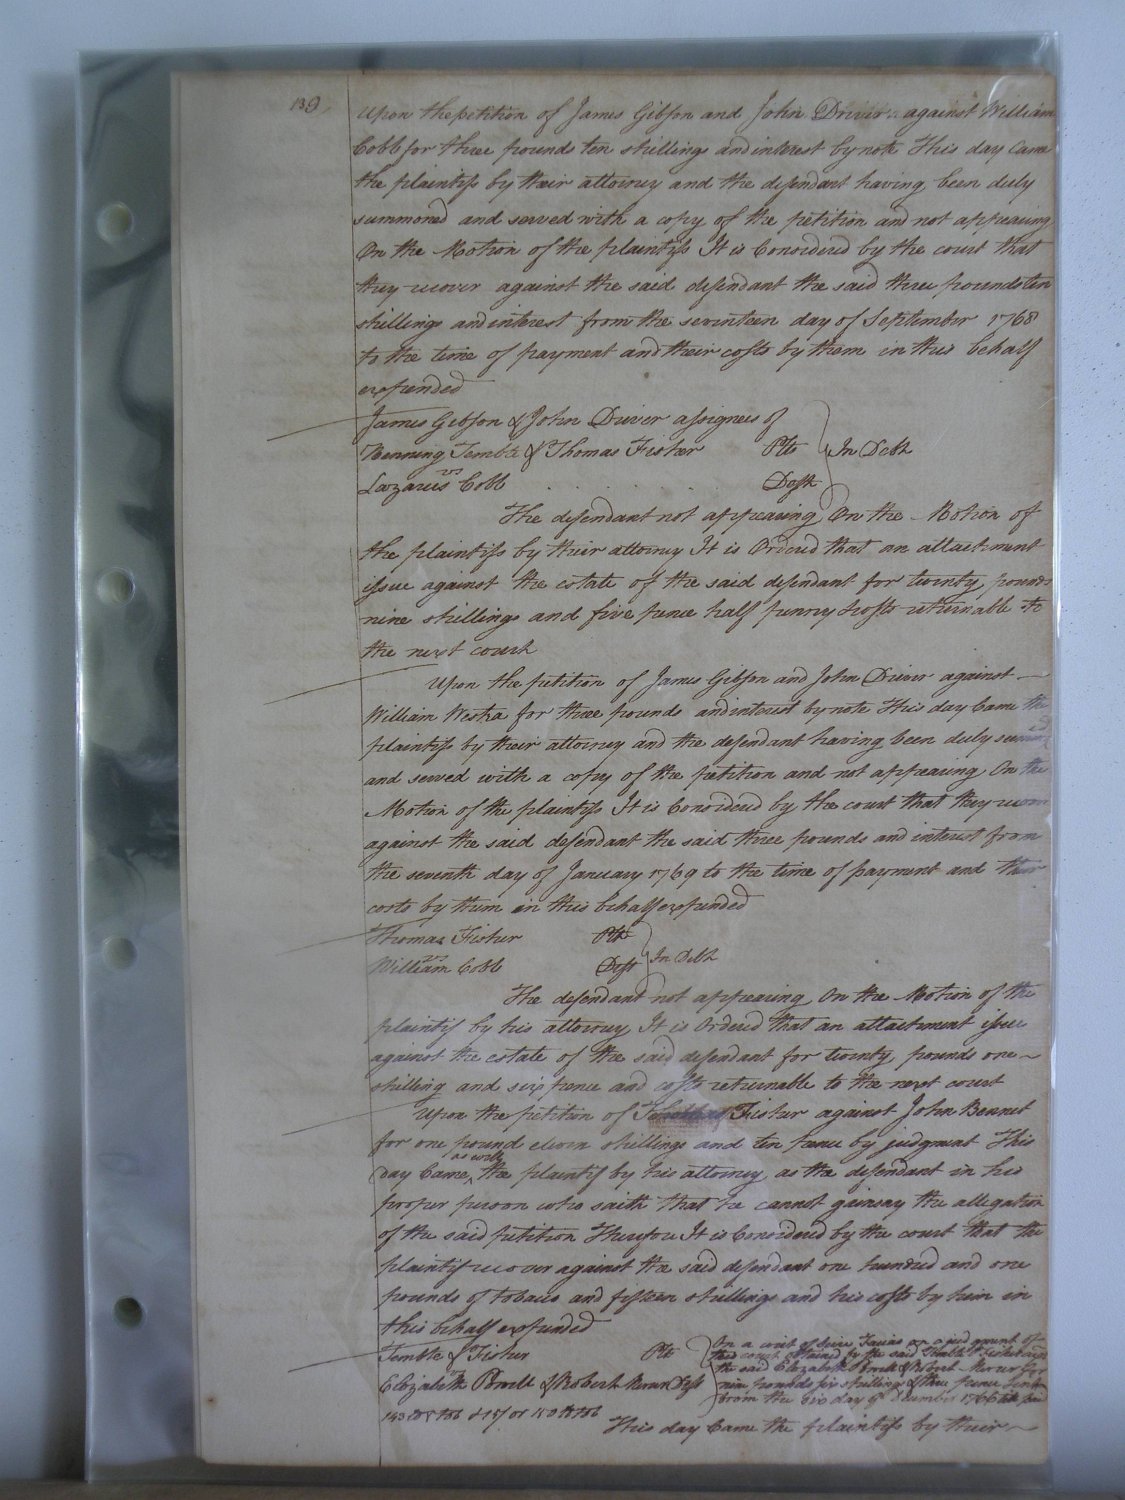 139
Upon the petition of James Gibson and John Driver against William
Cobb for three pounds ten shillings and interest by note This day Came
the plaintiffs by their attorney and the defendant having been duly
summoned and served with a copy of the petition and not appearing
On the Motion of the plaintiffs It is Considered by the court that
they recover against the said defendant the said three pounds ten
shillings and interest from the seventeen day of September 1768
to the time of payment and their costs by them in this behalf
expended
James Gibson & John Driver assignees of
Henning Tembte & Thomas Fisher Plts In Debt
vs
Lazarus Cobb Deft
The defendant not appearing On the Motion of
the plaintiffs by their attorney It is Ordered that an attachment
issue against the estate of the said defendant for twenty pounds
nine shillings and five pence half penny & costs returnable to
the next court
Upon the petition of James Gibson and John Driver against
William Westra for three pounds and interest by note This day Came the
plaintiffs by their attorney and the defendant having been duly summoned
and served with a copy of the petition and not appearing On the
Motion of the plaintiffs It is Considered by the court that they recover
against the said defendant the said three pounds and interest from
the seventh day of January 1769 to the time of payment and their
costs by them in this behalf expended
Thomas Fisher Plt
vs In Debt
William Cobb Deft
The defendant not appearing On the Motion of the
plaintif by his attorney It is Ordered that an attachment issue
against the estate of the said defendant for twenty pounds one
shilling and six pence and costs returnable to the next court
Upon the petition of Fisher against John Bennet
for one pound eleven shillings and ten pence by judgment This
day Came as well the plaintif by his attorney as the defendant in his
proper person who saith that he cannot gainsay the allegation
of the said petition Therefore It is Considered by the court that the
plaintif recover against the said defendant one hundred and one
pounds of tobacco and fifteen shillings and his costs by him in
this behalf expended
Tembte & Fisher Plts
vs
Elizabeth Powell & Robert Deft
On a writ of Scire Facias on a judgment of
this court obtained by the said Tembte & Fisher
the said Elizabeth Powell & Robert for
nine pounds six shilling & three pence
from the six day of December 1766
143 tob & 15/ or 150 tob
This day Came the plaintiffs by their